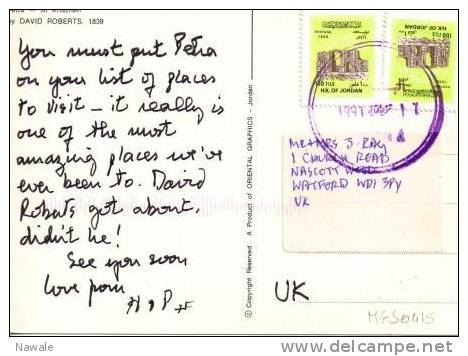 by DAVID ROBERTS. 1839
You must put Petra
on your list of places
to visit – it really is
one of the most
amazing places we've
ever been to. David
Roberts got about,
didn't he!
See you soon
love from
© Copyright Reserved A Product of ORIENTAL GRAPHICS - Jordan
100 FILS
H.K. OF JORDAN
100 FILS
H.K. OF JORDAN
1991
17
MR + MRS J.
1 CHURCH ROAD
NASCOTT
WATFORD WD1 3PY
UK
UK
MGS0415
Nawale
www.delcampe.net